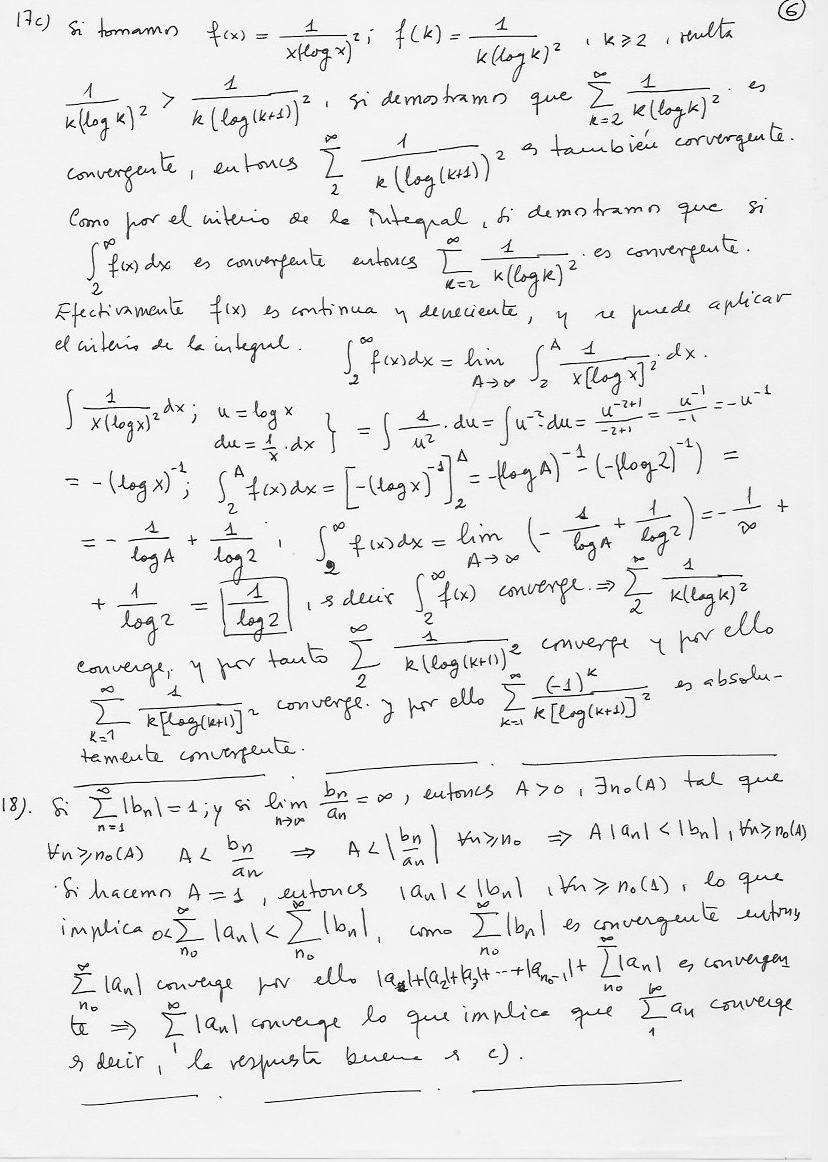 6
17c) Si tomamos f(x) = 1/(x(log x)²); f(k) = 1/(k(log k)²), k ≥ 2, resulta
1/(k(log k)²) > 1/(k(log(k+1))²), si demostramos que ∑_{k=2}^∞ 1/(k(log k)²) es
convergente, entonces ∑_2^∞ 1/(k(log(k+1))²) es también convergente.
Como por el criterio de la integral, si demostramos que si
∫_2^∞ f(x) dx es convergente entonces ∑_{k=2}^∞ 1/(k(log k)²) es convergente.
Efectivamente f(x) es continua y decreciente, y se puede aplicar
el criterio de la integral. ∫_2^∞ f(x)dx = lim_{A→∞} ∫_2^A 1/(x[log x]²) · dx.
∫ 1/(x(log x)²) dx; u = log x du = 1/x · dx } = ∫ 1/u² · du = ∫ u⁻² · du = u^{-2+1}/(-2+1) = u⁻¹/-1 = -u⁻¹
= -(log x)⁻¹; ∫_2^A f(x)dx = [-(log x)⁻¹]_2^A = -(log A)⁻¹ - (-(log 2)⁻¹) =
= - 1/log A + 1/log 2; ∫_2^∞ f(x)dx = lim_{A→∞} (- 1/log A + 1/log 2) = - 1/∞ +
+ 1/log 2 = 1/log 2, es decir ∫_2^∞ f(x) converge. ⇒ ∑_2^∞ 1/(k(log k)²)
converge, y por tanto ∑_2^∞ 1/(k(log(k+1))²) converge y por ello
∑_{k=1}^∞ 1/(k[log(k+1)]²) converge. y por ello ∑_{k=1}^∞ (-1)^k/(k[log(k+1)]²) es absolu-
tamente convergente.
18). Si ∑_{n=1}^∞ |bn| = 1; y si lim_{n→∞} bn/an = ∞, entonces A > 0, ∃n₀(A) tal que
∀n ≥ n₀(A) A < bn/an ⇒ A < |bn/an| ∀n ≥ n₀ ⇒ A|an| < |bn|, ∀n ≥ n₀(A)
Si hacemo A = 1, entonces |an| < |bn|, ∀n ≥ n₀(1), lo que
implica 0< ∑_{n₀}^∞ |an| < ∑_{n₀}^∞ |bn|, como ∑_{n₀}^∞ |bn| es convergente entons
∑_{n₀}^∞ |an| converge por ello |a₁|+|a₂|+|a₃|+···+|a_{n₀-1}| + ∑_{n₀}^∞ |an| es convergen
te ⇒ ∑_1^∞ |an| converge lo que implica que ∑_1^∞ an converge
es decir, la respuesta buena es c).